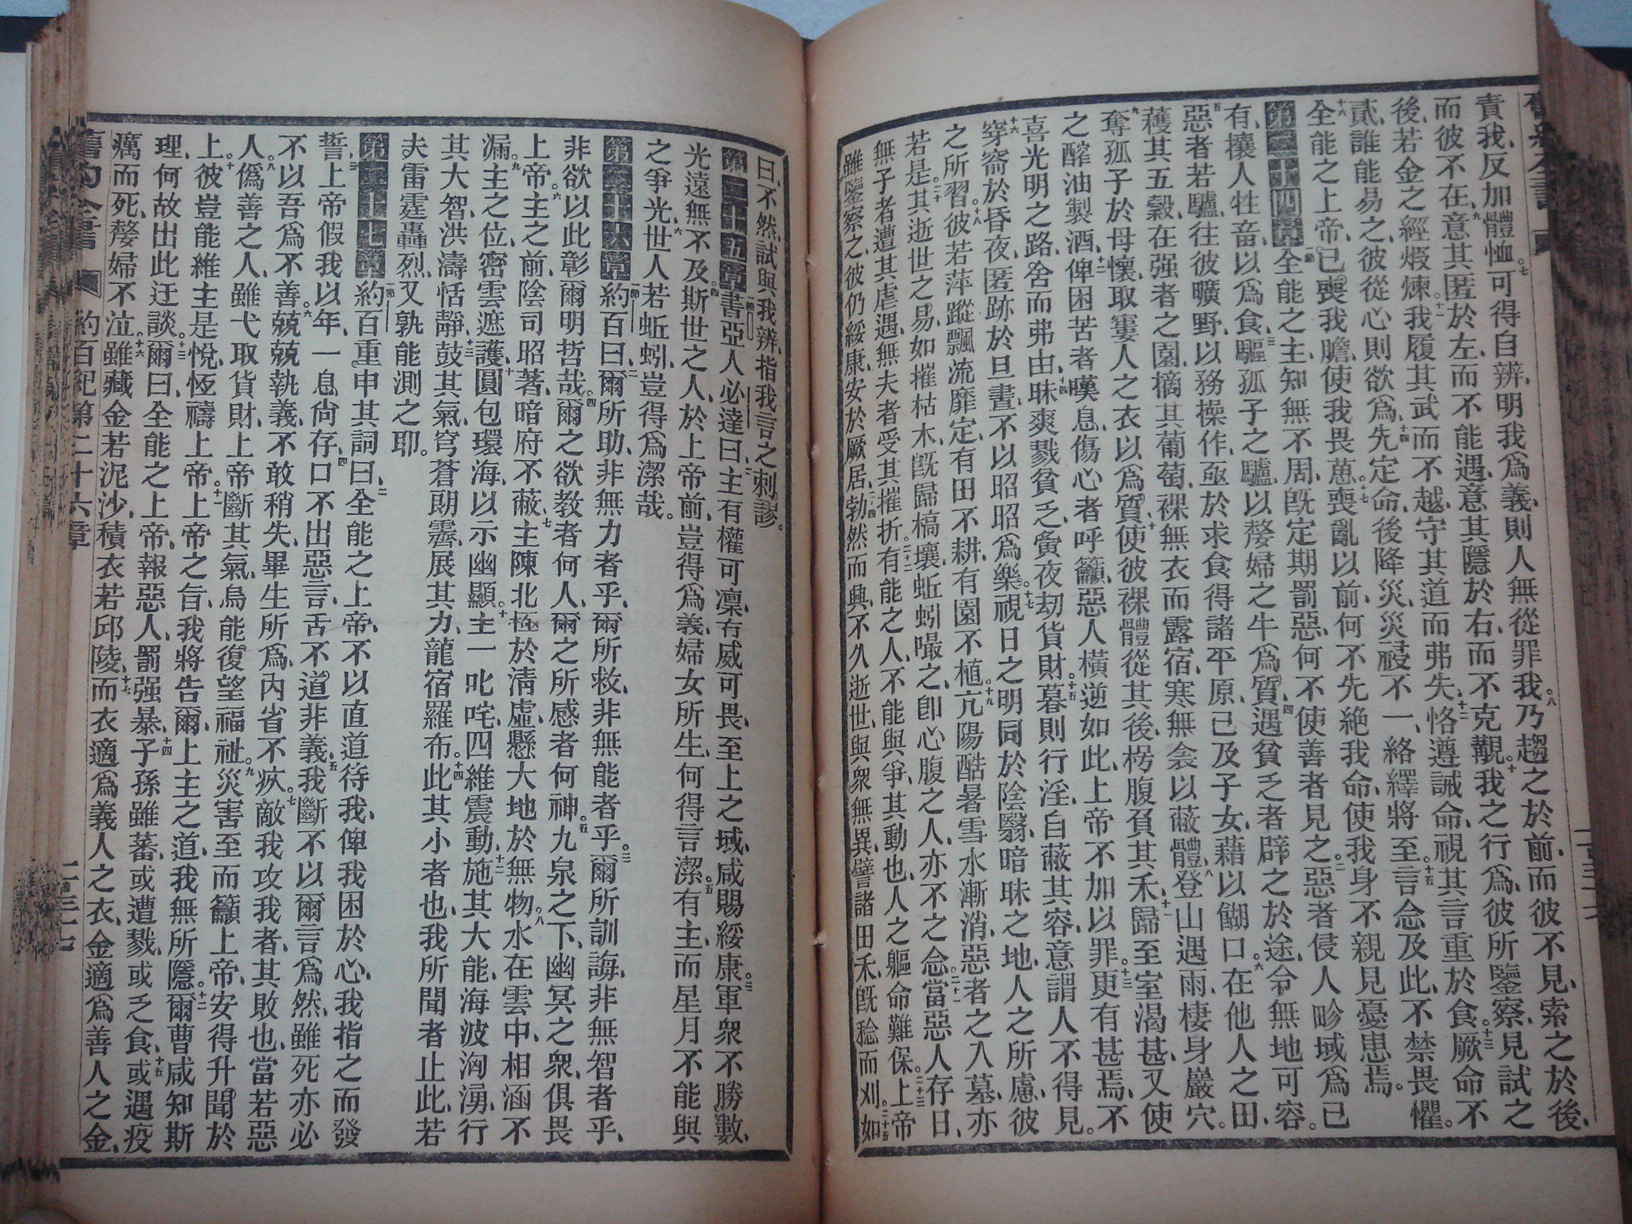 舊約全書
責我、反加體恤、七可得自辨、明我爲義、則人無從罪我、八乃趨之於前、而彼不見、索之於後、
而彼不在、九意其匿於左、而不能遇、意其隱於右、而不克觀、十我之行爲、彼所鑒察、見試之
後、若金之經煆煉、十一我履其武、而不越、守其道而弗失、十二恪遵誡命、視其言重於食、十三厥命不
貳、誰能易之、彼從心所欲爲、十四先定命、後降災、災祲不一、絡繹將至、十五言念及此、不禁畏懼。
十六全能之上帝、已喪我膽、使我畏葸、十七喪亂以前、何不先絕我命、使我身不親見憂患焉。
第二十四章 一節全能之主、知無不周、旣定期罰惡、何不使善者見之、二惡者侵人畛域爲已
有、攘人牲畜以爲食、三驅孤子之驢、以嫠婦之牛爲質、四遇貧乏者、辟之於途、令無地可容。
五惡者若驢、往彼曠野、以務操作、亟於求食、得諸平原、已及子女、藉以餬口、六在他人之田、
穫其五穀、在强者之園、摘其葡萄、七裸無衣而露宿、寒無衾以蔽體、八登山遇雨、棲身巖穴。
九奪孤子於母懷、取寠人之衣以爲質、十使彼裸體從其後、枵腹負其禾、十一歸至室渴甚、又使
之醡油製酒、十二俾困苦者嘆息、傷心者呼籲、惡人橫逆如此、上帝不加以罪、十三更有甚焉、不
喜光明之路、舍而弗由、十四昧爽戮貧乏、夤夜刧貨財、十五暮則行淫、自蔽其容、意謂人不得見。
十六穿窬於昏夜、匿跡於旦晝、不以昭昭爲樂、十七視日之明、同於陰翳、暗昧之地、人之所慮、彼
之所習、十八彼若萍蹤、飄流靡定、有田不耕、有園不植、十九亢陽酷暑、雪水漸消、惡者之入墓、亦
若是、二十其逝世之易、如摧枯木、旣歸槁壤、蚯蚓嘬之、卽心腹之人、亦不之念、二十一當惡人存日、
無子者遭其虐遇、無夫者受其摧折、二十二有能之人、不能與爭、其動也、人之軀命難保、二十三上帝
雖鑒察之、彼仍綏康、安於厥居、二十四勃然而興、不久逝世、與衆無異、譬諸田禾、旣稔而刈、二十五如
曰不然、試與我辨、指我言之刺謬。
第二十五章 一節書亞人必達曰、二主有權可凜、有威可畏、至上之域、咸賜綏康、三軍衆不勝數、
光遠無不及、四斯世之人、於上帝前、豈得爲義、婦女所生、何得言潔、五有主而星月不能與
之爭光、六世人若蚯蚓、豈得爲潔哉。
第二十六章 一節約百曰、二爾所助、非無力者乎、爾所救、非無能者乎、三爾所訓誨、非無智者乎、
非欲以此彰爾明哲哉、四爾之欲教者何人、爾之所感者何神、五九泉之下、幽冥之衆、俱畏
上帝、六主之前、陰司昭著、暗府不蔽、七主陳北極於淸虛、懸大地於無物、八水在雲中、相涵不
漏、九主之位、密雲遮護、十圜包環海、以示幽顯、十一主一叱咤、四維震動、十二施其大能、海波洶湧、行
其大智、洪濤恬靜、十三鼓其氣、穹蒼朗霽、展其力、龍宿羅布、十四此其小者也、我所聞者止此、若
夫雷霆轟烈、又孰能測之耶。
第二十七章 一節約百重申其詞曰、二全能之上帝、不以直道待我、俾我困於心、我指之而發
誓、三上帝假我以年、一息尙存、四口不出惡言、舌不道非義、五我斷不以爾言爲然、雖死亦必
不以吾爲不善、六兢兢執義、不敢稍失、畢生所爲、內省不疚、七敵我攻我者、其敗也當若惡
人、八僞善之人、雖弋取貨財、上帝斷其氣、烏能復望福祉、九災害至而籲上帝、安得升聞於
上、十彼豈能維主是悅、恆禱上帝、十一上帝之旨、我將告爾、上主之道、我無所隱、十二爾曹咸知斯
理、何故出此迂談、十三爾曰、全能之上帝、報惡人、罰强暴、十四子孫雖蕃、或遭戮、或乏食、十五或遇疫
癘而死、嫠婦不泣、十六雖藏金若泥沙、積衣若邱陵、十七而衣適爲義人之衣、金適爲善人之金、
舊約全書 約百紀第二十六章